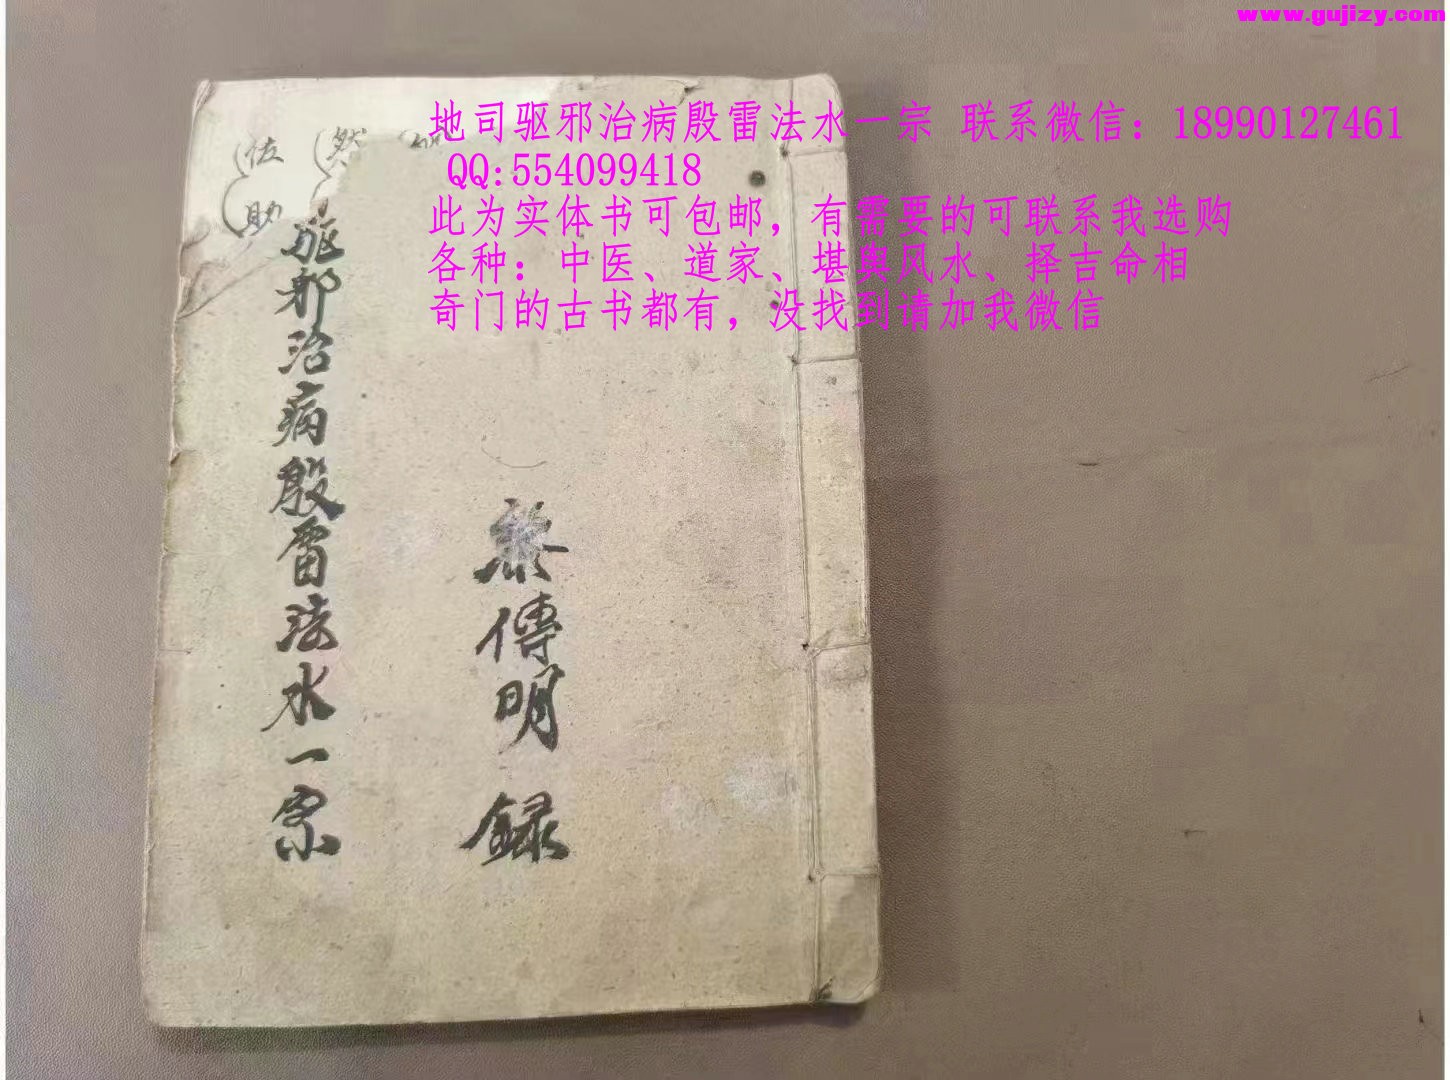 www.gujizy.com
地司驱邪治病殷雷法水一宗 联系微信：18990127461
QQ:554099418
此为实体书可包邮，有需要的可联系我选购
各种：中医、道家、堪舆风水、择吉命相
奇门的古书都有，没找到请加我微信
傳明錄
驱邪治病殷雷法水一宗
佐助